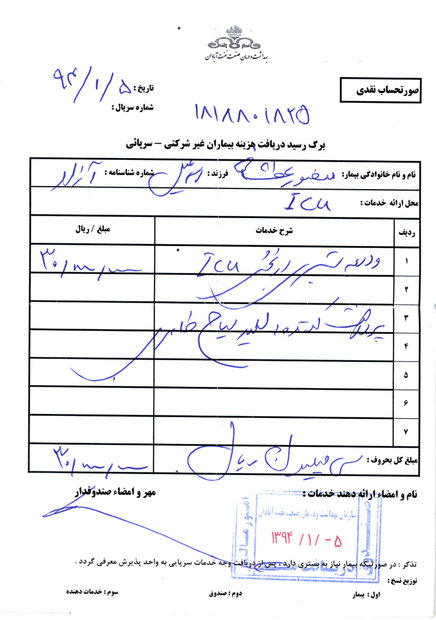 بهداشت و درمان صنعت نفت آبادان
صورتحساب نقدی
تاریخ : ۹۴/۱/۵
شماره سریال : ۱۸۱۸۸۰۱۸۲۵
برگ رسید دریافت هزینه بیماران غیر شرکتی – سرپائی
نام و نام خانوادگی بیمار: منصور فرزند : شماره شناسنامه : آزاد
محل ارائه خدمات : ICU
ردیف شرح خدمات مبلغ / ریال
۱ ودیعه بستری در بخش ICU ۳۰/۰۰۰/۰۰۰
۲
۳ پرداخت کننده
۴
۵
۶
۷
مبلغ کل بحروف : سی میلیون ریال ۳۰/۰۰۰/۰۰۰
نام و امضاء ارائه دهند خدمات : مهر و امضاء صندوقدار
سازمان بهداشت و درمان صنعت نفت آبادان
امور مالی
۱۳۹۴/۱/-۵
صندوق
دریافت
تذکر : در صورتیکه بیمار نیاز به بستری دارد ، پس از دریافت وجه خدمات سرپایی به واحد پذیرش معرفی گردد .
توزیع نسخ :
اول : بیمار دوم : صندوق سوم : خدمات دهنده